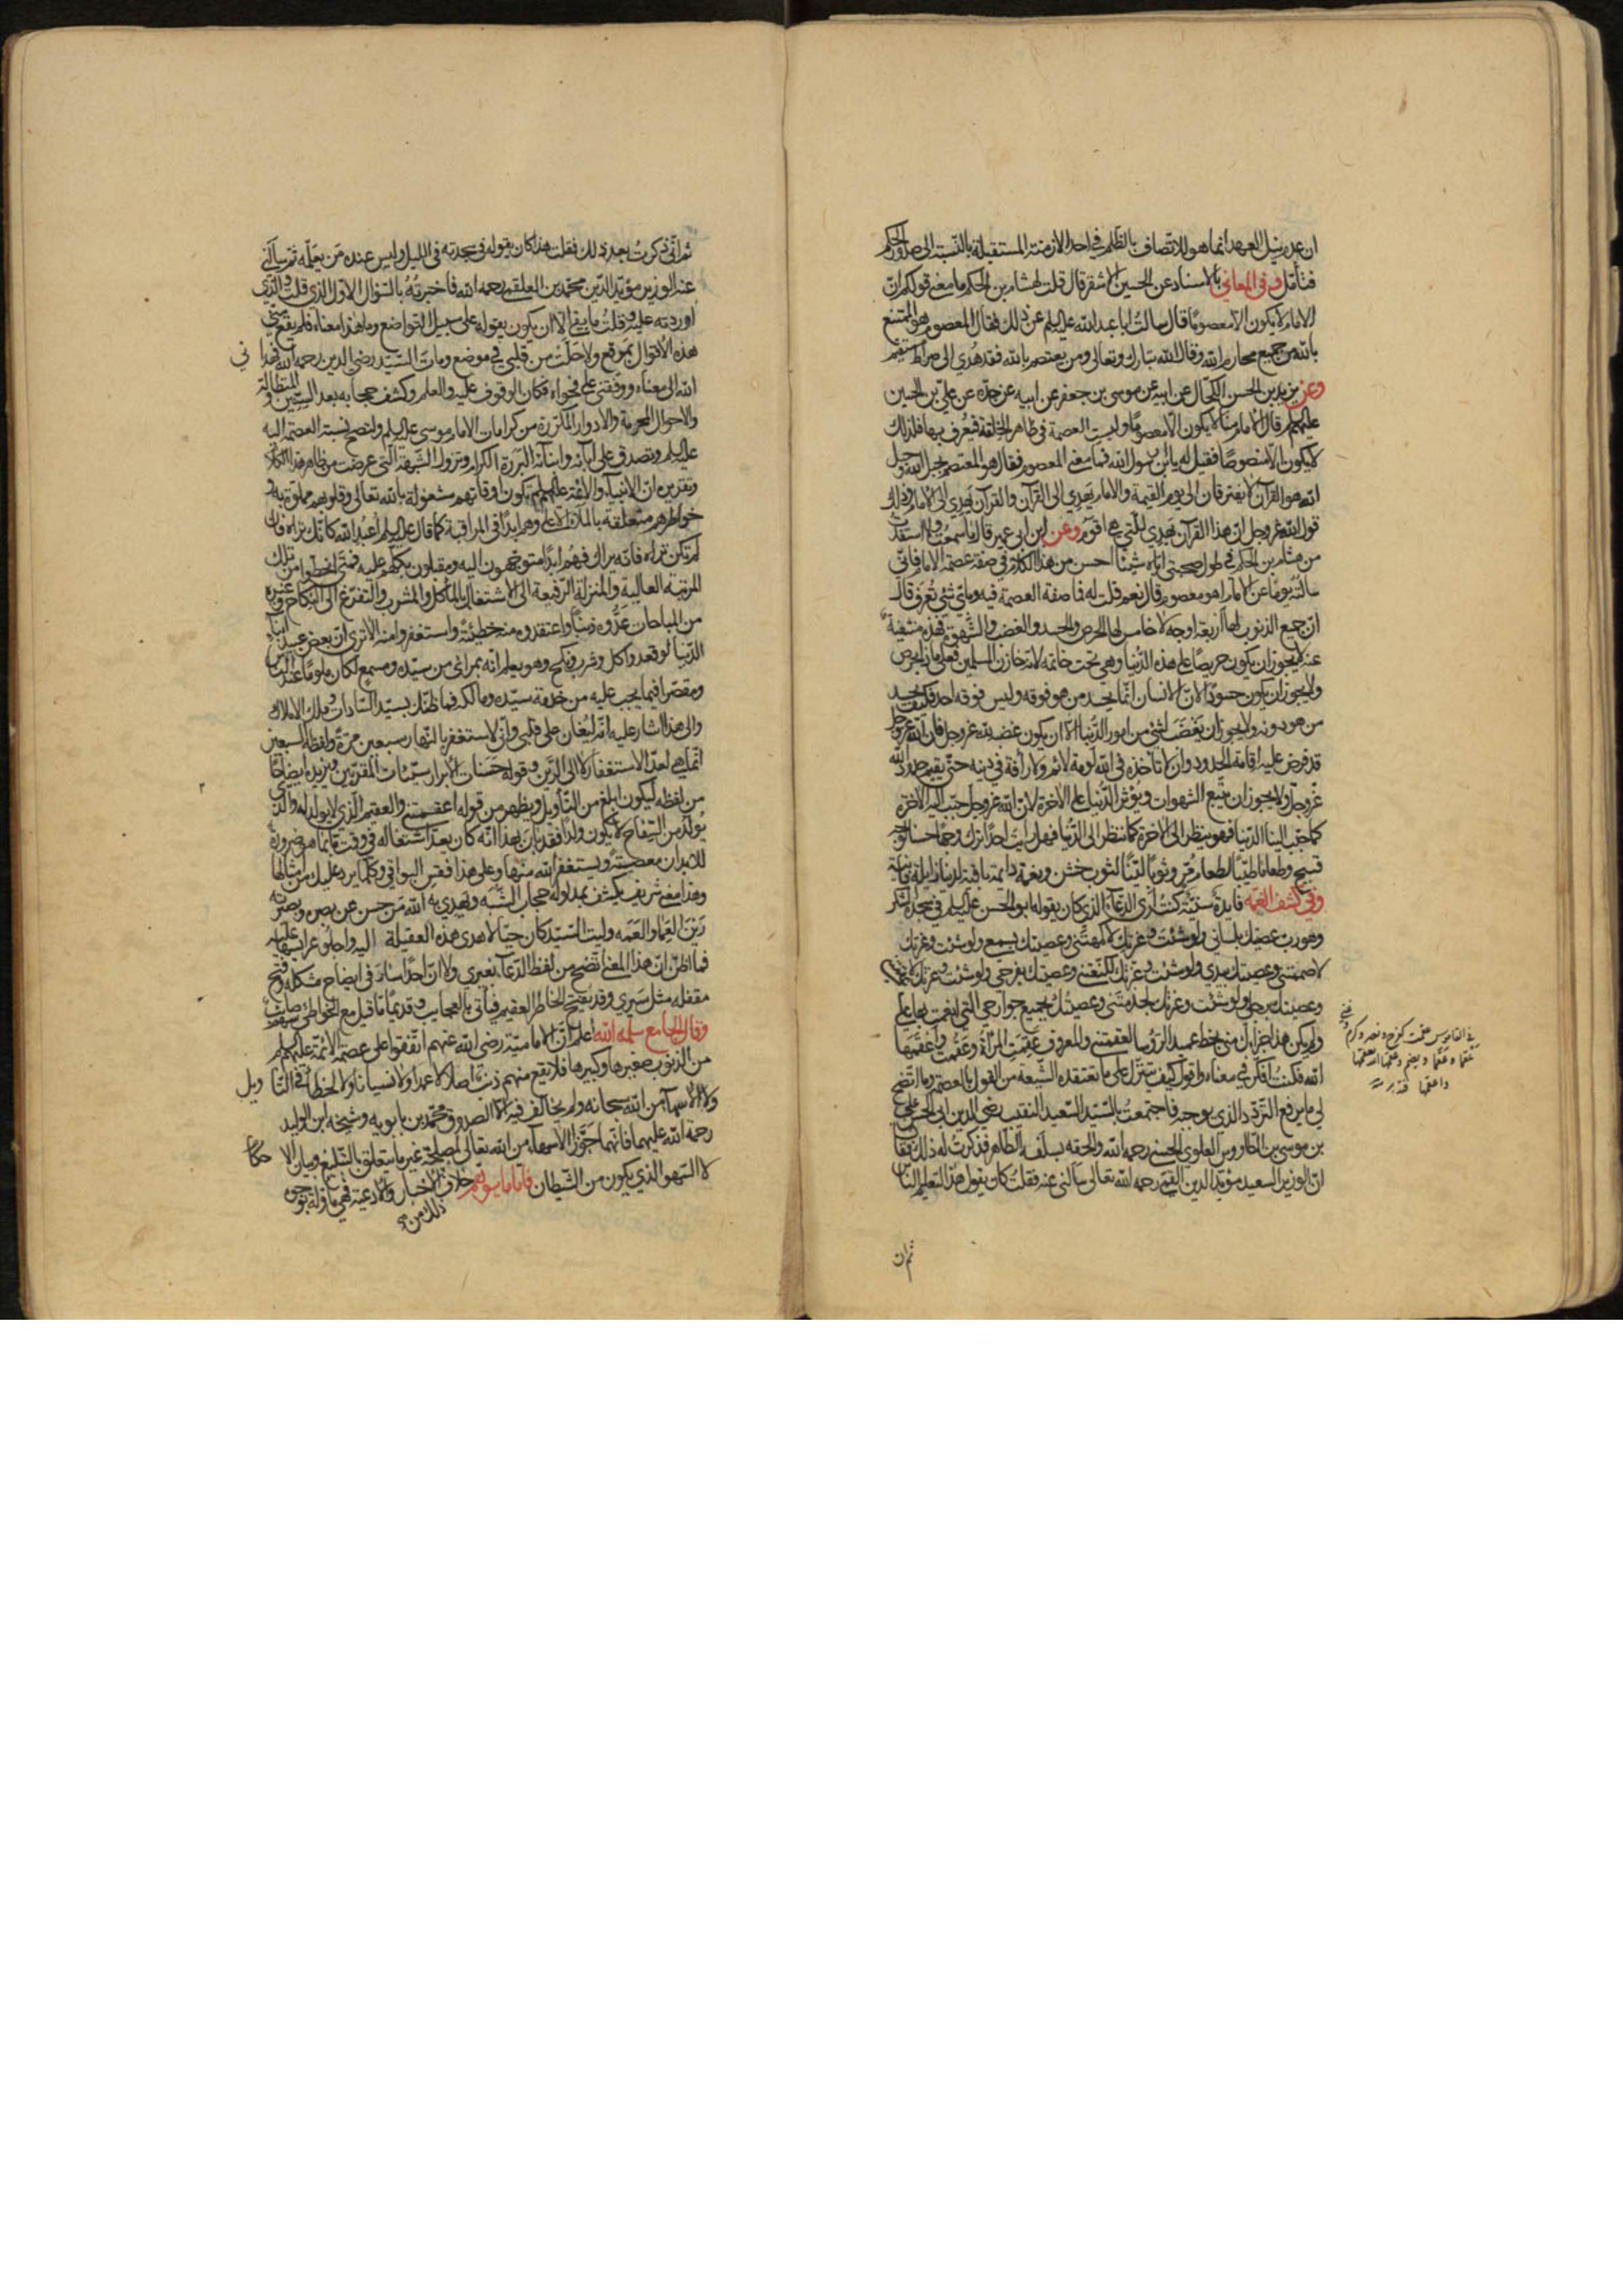 ان عدم نيل العهد انما هو للاتصاف بالظلم في احد الازمنة المستقبلة بالنسبة الى صدور الحكم
فتأمل وفي المعاني بالاسناد عن الحسين الاشقر قال قلت لهشام بن الحكم ما معنى قولكم ان
الامام لا يكون الا معصوما قال سالت ابا عبد الله عليه السلم عن ذلك فقال المعصوم هو الممتنع
بالله من جميع محارم الله وقال الله تبارك وتعالى ومن يعتصم بالله فقد هُدي الى صراط مستقيم
وعن بن يزيد بن الحسن الكحال عن ابيه عن موسى بن جعفر عن ابيه عن جده عن علي بن الحسين
عليهم السلم قال الامام منا لا يكون الا معصوما وليست العصمة في ظاهر الخلقة فيُعرف بها فلذلك
لا يكون الا منصوصا فقيل له يا بن رسول الله فما معنى المعصوم فقال هو المعتصم بحبل الله وحبل
الله هو القرآن لا يفترقان الى يوم القيمة والامام يَهدِي الى القرآن والقرآن يَهدِي الى الامام وذلك
قول الله عز وجل ان هذا القرآن يَهدِي للتي هي اقوم وعن ابن ابي عمير قال ما سمعت ولا استفدت
من هشام بن الحكم في طول صحبتي اياه شيئا احسن من هذا الكلام في صفة عصمة الامام فاني
سالته يوما عن الامام اهو معصوم قال نعم قلت له فما صفة العصمة فيه وباي شئ تُعرَف قال
ان جميع الذنوب لها اربعة اوجه لا خامس لها الحرص والحسد والغضب والشهوة فهذه منتفية
عنه لا يجوز ان يكون حريصا على هذه الدنيا وهي تحت خاتمه لانه خازن المسلمين فعلى ما ذا يحرص
ولا يجوز ان يكون حسودا لان الانسان انما يحسد من هو فوقه وليس فوقه احد فكيف يحسد
من هو دونه ولا يجوز ان يَغضَبَ لشئ من امور الدنيا الا ان يكون غضبه لله عز وجل فان الله عز وجل
قد فرض عليه اقامة الحدود وان لا تأخذه في الله لومة لائم ولا رأفة في دينه حتى يقيم حدود الله
عز وجل ولا يجوز ان يتبع الشهوات ويؤثر الدنيا على الاخرة لان الله عز وجل حبب اليه الاخرة
كما حبب الينا الدنيا فهو ينظر الى الاخرة كما ننظر الى الدنيا فهل رايت احدا ترك وجها حسنا لوجه
قبيح وطعاما طيبا لطعام مُرّ وثوبا لينا لثوب خشن ونعمة دائمة باقية لدنيا زايلة فانية
وفي كشف الغمه فايدة سنية كنت ارى الدعاء الذي كان يقوله ابو الحسن عليه السلم في سجدة الشكر
وهو رب عصيتك بلساني ولو شئت وعزتك لاخرستني وعصيتك ببصري ولو شئت وعزتك
لاصممتني وعصيتك بيدي ولو شئت وعزتك لكنعتني وعصيتك بفرجي ولو شئت وعزتك لاعقمتني
وعصيتك برجلي ولو شئت وعزتك لجذمتني وعصيتك بجميع جوارحي التي انعمت بها علي
ولم يكن هذا جزاءك مني بخط عميد الرؤسا لعقمتني والمعروف عَقِمَت المرأة وعَقُمت وأعقمها
الله فكنتُ افكر في معناه واقول كيف يتنزل على ما تعتقده الشيعة من القول بالعصمة وما اتضح
لي ما يرفع التردد الذي يوجبه فاجتمعتُ بالسيد السعيد النقيب رضي الدين ابي الحسن علي
بن موسى بن الطاووس العلوي الحسني رحمه الله والحقه بسلفه الطاهر فذكرت له ذلك فقال
ان الوزير السعيد مؤيد الدين القمي رحمه الله تعالى سالني عنه فقلت كان يقول هذا ليعلم الناس
ثم ان
في القاموس عقمت كفرح ونصر وكرم وعني
عَقْما وعَقَما ويضم وعقمها الله يعقمها
واعقمها
ثم اني ذكرت بعد ذلك فقلت هذا كان يقوله في سجدته في الليل وليس عنده من يعلمه ثم سالني
عنه الوزير مؤيد الدين محمد بن العلقمي رحمه الله فاخبرتُهُ بالسؤال الاول الذي قلت والذي
اوردته عليه وقلتُ ما بقي الا ان يكون يقوله على سبيل التواضع وما هذا معناه فلم يقع مني
هذه الاقوال بموقع ولا حَلَتْ من قلبي في موضع ومات السيد رضي الدين رحمه الله فهدا ني
الله الى معناه ووفقني على فحواه فكان الوقوف عليه والعلم وكشف حجابه بعد السنين المتطاولة
والاحوال المجرمة والادوار المكررة من كرامات الامام موسى عليه السلم ولتصح نسبة العصمة اليه
عليه السلم وتصدق على آبائه وابنائه البررة الكرام وتزول الشبهة التي عرضت من ظاهر هذا الكلام
وتقريره ان الانبياء والائمة عليهم السلم تكون اوقاتهم مشغولة بالله تعالى وقلوبهم مملوة به و
خواطرهم متعلقة بالملأ الاعلى وهم ابدا في المراقبة كما قال عليه السلم اُعبُد الله كانك تراه فان
لم تكن تراه فانه يراك فهُم ابدًا متوجهون اليه ومقبلون بكلهم عليه فمتى انحطوا من تلك
المرتبة العالية والمنزلة الرفيعة الى الاشتغال بالمأكل والمشرب والتفرغ الى النكاح وغيره
من المباحات عَدُّوه ذنبا واعتقدوه منه خطيئة واستغفروا منه الا ترى ان بعض عبيد ابناء
الدنيا لو قعد واكل وشرب ونكح وهو يعلم انه بمرأى من سيده ومسمع لكان ملوما عند الناس
ومقصرا فيما يجب عليه من خدمة سيده ومالكه فما ظنك بسيد السادات وملك الاملاك
والى هذا اشار عليه انه لَيُغان على قلبي واني لاستغفر بالنهار سبعين مرة ولفظه السبعين
انما هي لعدّ الاستغفار لا الى الرَّين وقوله حَسَنات الابرار سيئات المقربين ونزيده ايضاحا
من لفظه ليكون ابلغ من التأويل ويظهر من قوله اعقمتني والعقيم الذي لا يولد له والذي
يُولَد من السفاح لا يكون ولدًا فقد بان بهذا انه كان يعد اشتغاله في وقت ما بما هو ضرورة
للابدان معصيةً ويستغفر الله منها وعلى هذا فقِس البواقي وكلما يرد عليك من امثالها
وهذا معنى شريف يكشف بمدلوله حجاب الشبه ويَهدِي به الله مَن حسر عن بصره وبصيرته
رَينَ العَمى والعَمَه وليت السيد كان حيًا لاهدي هذه العقيلة اليه واجلو عرايسها عليه
فما اظن ان هذا المعنى اتضح من لفظ الدعاء لغيري ولا ان احدًا سار في ايضاح مشكله وفتح
مقفله مثل سَيري وقد يُنتِج الخاطر العقيم فيأتي بالعجايب وقديمًا ما قيل مع الخواطئ سهم صائب
وقال الجامع سلمه الله اعلم ان الامامية رضي الله عنهم اتفقوا على عصمة الائمة عليهم السلم
من الذنوب صغيرها وكبيرها فلا يقع منهم ذنب اصلا لا عمدا ولا نسيانا ولا الخطأ في التا ويل
ولا الاسهاء من الله سبحانه ولم يخالف فيه الا الصدوق محمد بن بابويه وشيخه ابن الوليد
رحمة الله عليهما فانهما جَوَّزا الاسهاء من الله تعالى لمصلحة غير ما يتعلق بالتبليغ وبيان الا حكام
لا السهو الذي يكون من الشيطان فاما ما يوهم خلاف الاخبار والادعية فهي ماوّلة بوجوه
ذلك من